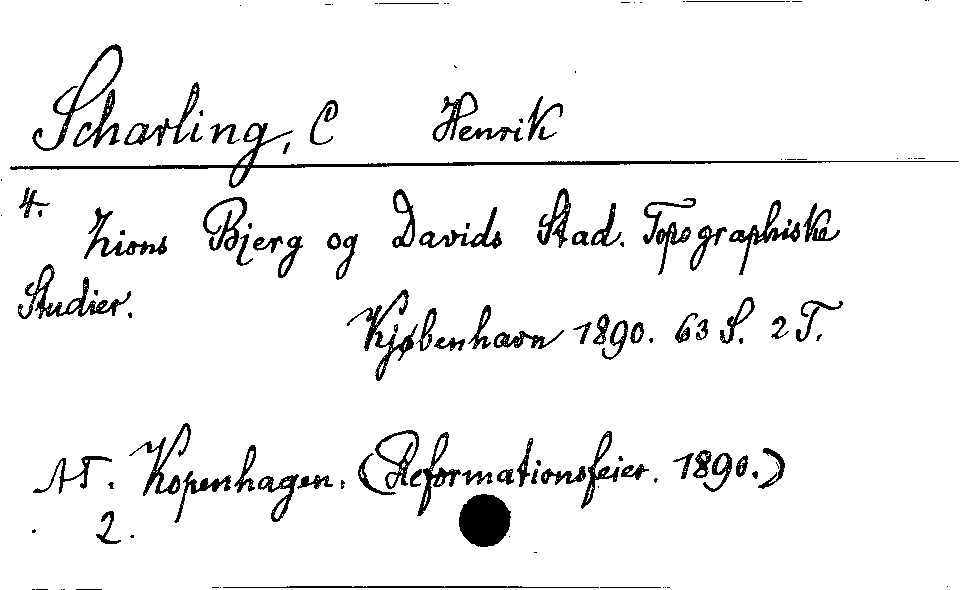 Scharling, C Henrik
4.
Zions Bjerg og Davids Stad. Topographiske
Studier.
Kjøbenhavn 1890. 63 S. 2 T.
AT. Kopenhagen. (Reformationsfeier. 1890.)
2.